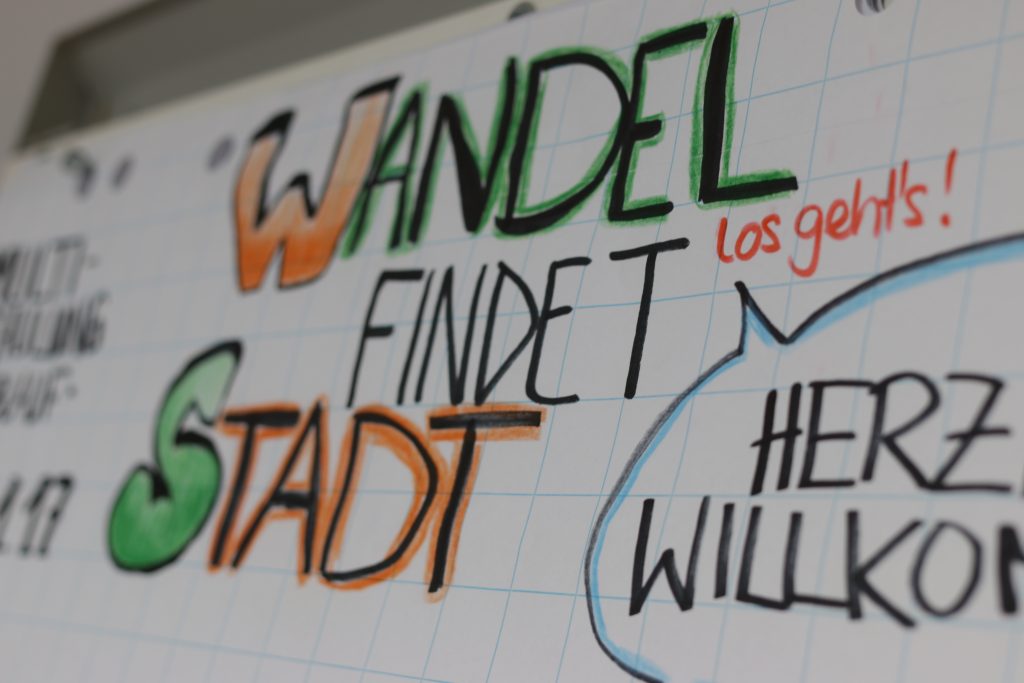 WANDEL
los geht's!
FINDET
STADT
MULTI-
HERZ
WILLKOM
.17